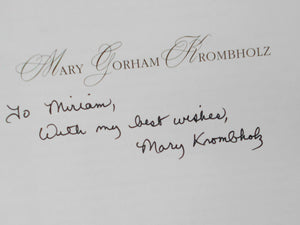 Mary Gorham Krombholz
To Miriam,
With my best wishes,
Mary Krombholz